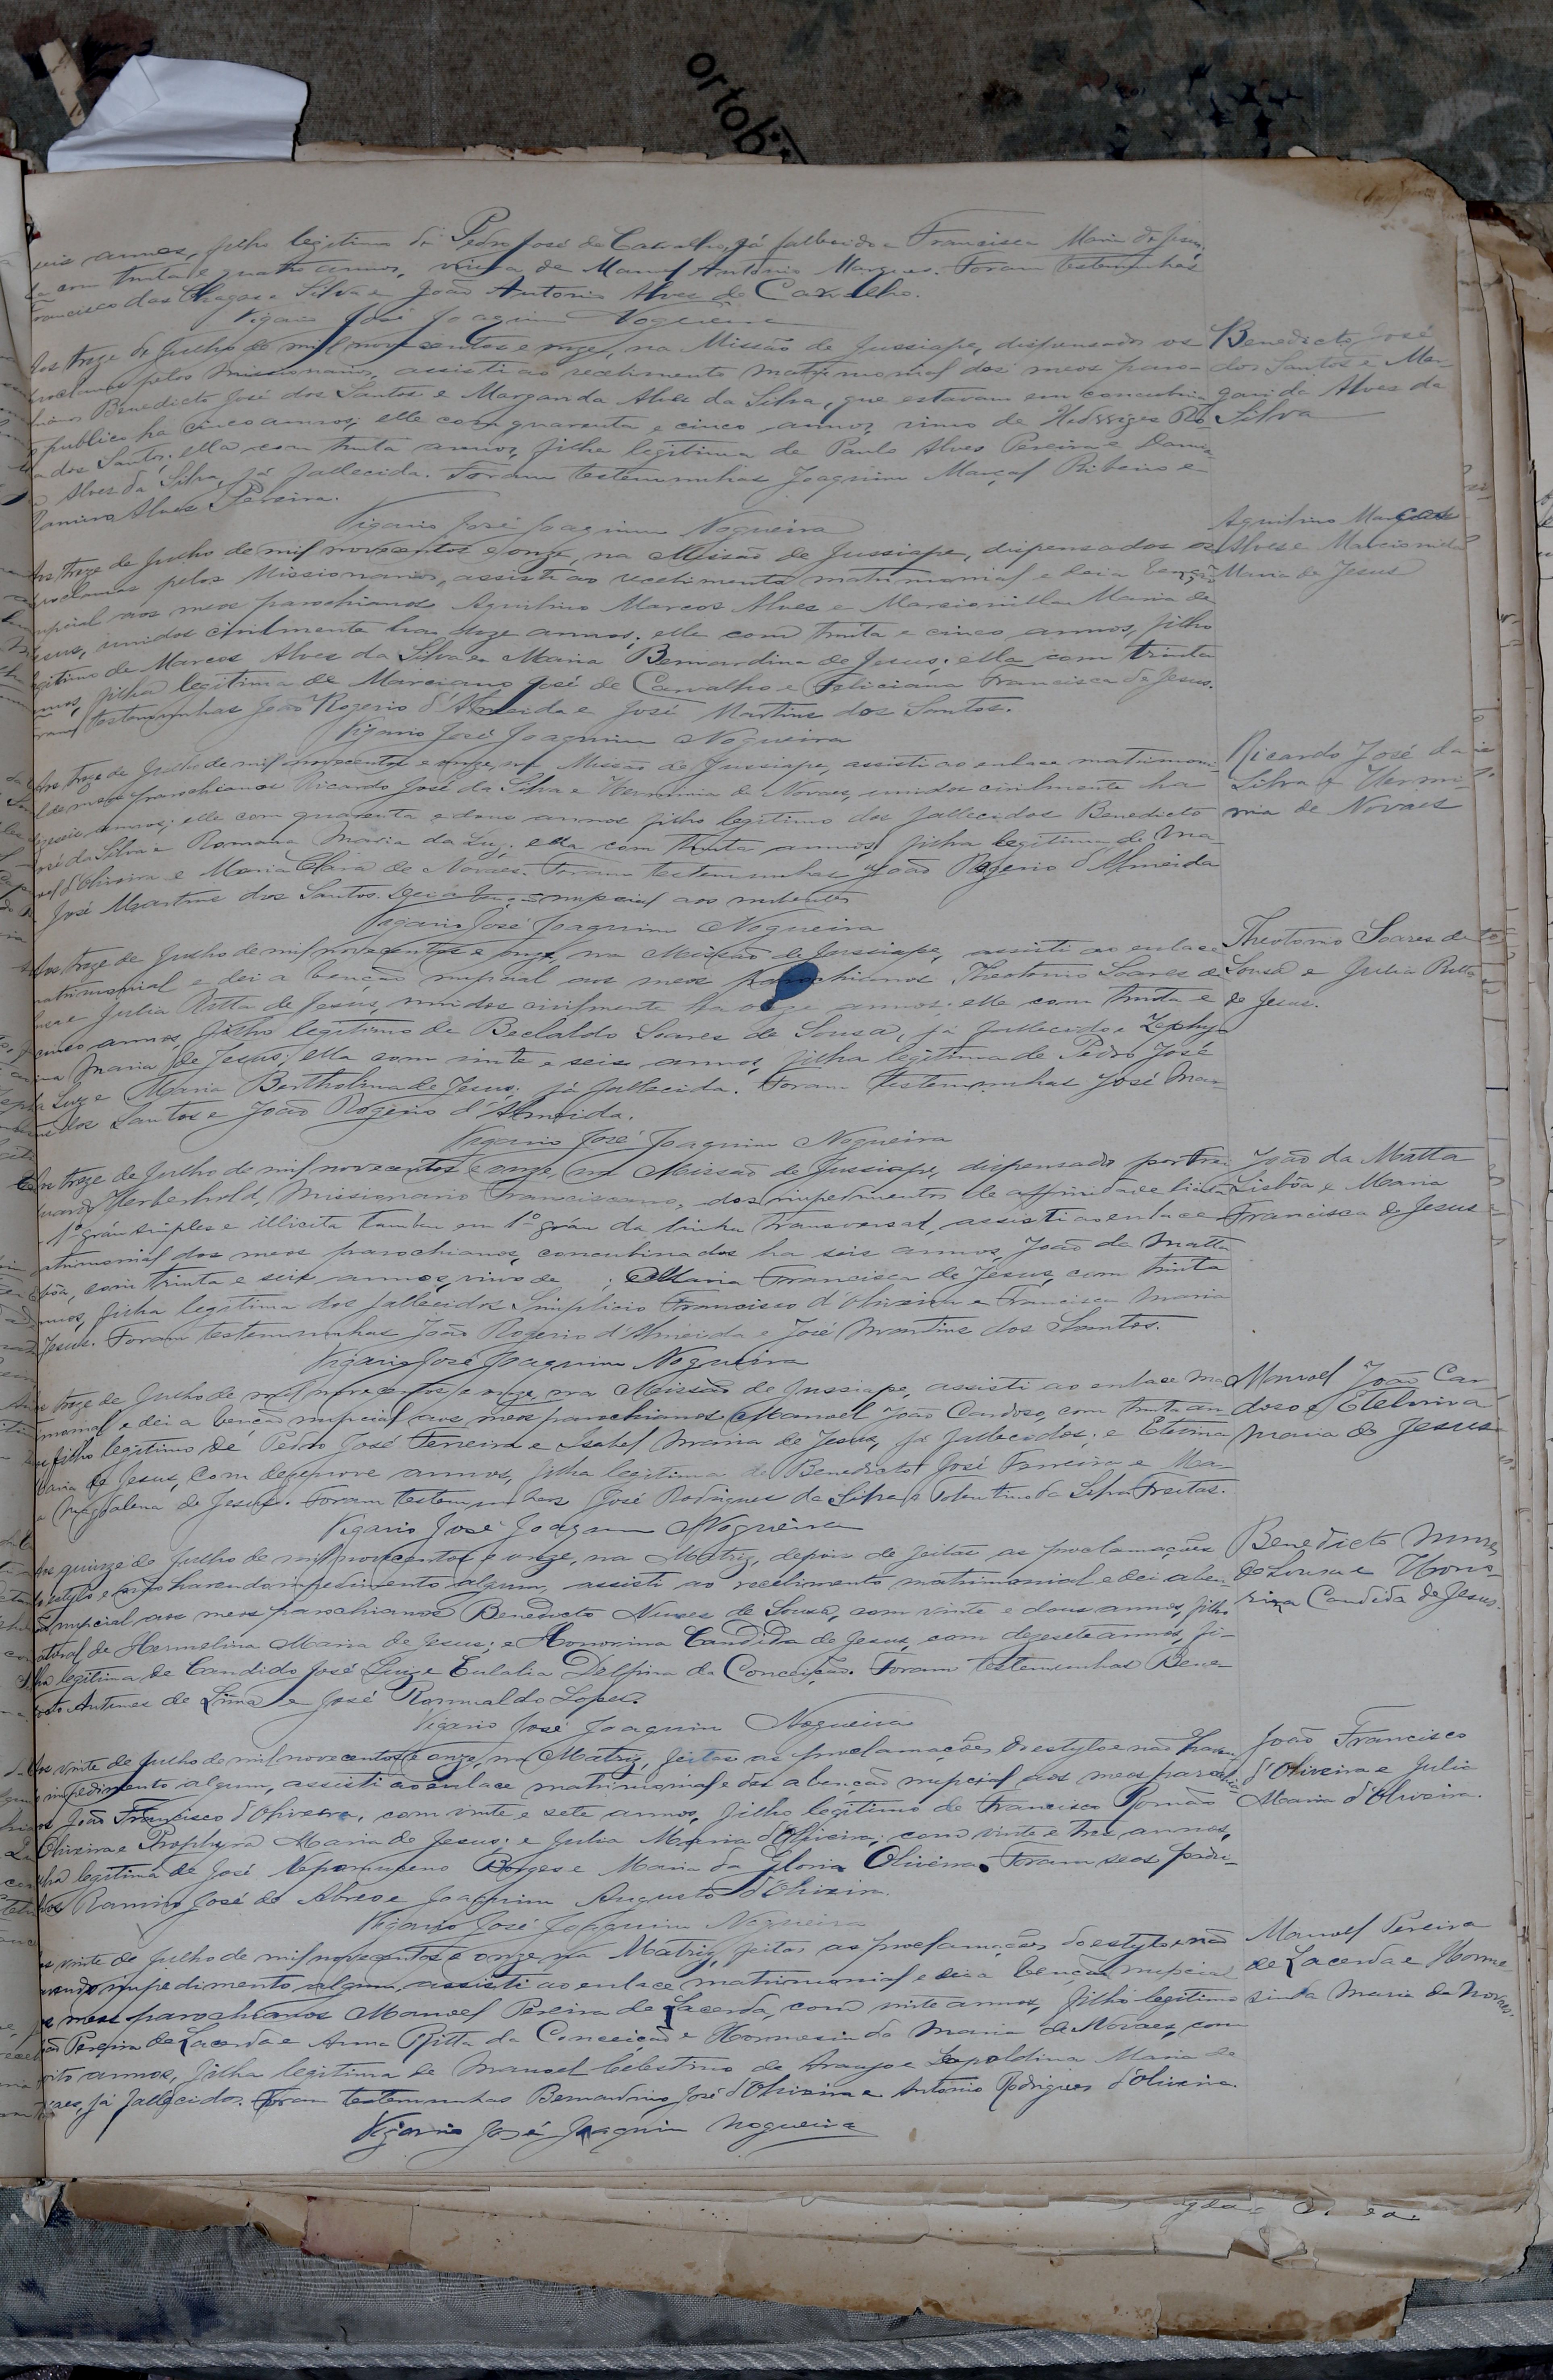 seis annos, filho legitimo de Pedro José de Carvalho, já fallecido e Francisca Maria de Jesus;
com trinta e quatro annos, viuva de Manoel Antonio Marques. Foram testemunhas
Francisco das Chagas e Silva e João Antonio Alves de Carvalho.
Vigario José Joaquim Nogueira
Aos treze de Julho de mil novecentos e onze, na Missão de Jussiape, dispensados os
proclamas pelos Missionarios, assisti ao recebimento matrimonial dos meos paro-
Benedicto José dos Santos e Margarida Alves da Silva, que estavam em concubina
publico ha cinco annos; elle com quarenta e cinco annos, viuvo de Hedwiges
dos Santos; ella com trinta annos, filha legitima de Paulo Alves Pereira e
Alves da Silva, já fallecida. Foram testemunhas Joaquim Marçal Ribeiro e
Ramiro Alves Pereira.
Vigario José Joaquim Nogueira
Benedicto José
dos Santos e Mar-
garida Alves da
Silva
Aos treze de Julho de mil novecentos e onze, na Missão de Jussiape, dispensados os
proclamas pelos Missionarios, assisti ao recebimento matrimonial e dei a benção
nupcial aos meos parochianos Aquilino Marcos Alves e Marcionilla Maria de
Jesus, unidos civilmente ha onze annos; elle com trinta e cinco annos, filho
legitimo de Marcos Alves da Silva e Maria Bernardina de Jesus; ella com trinta
annos, filha legitima de Marciano José de Carvalho e Feliciana Francisca de Jesus.
Foram testemunhas João Rogerio d'Almeida e José Martins dos Santos.
Vigario José Joaquim Nogueira
Aquilino Marcos
Alves e Marcionilla
Maria de Jesus
Aos treze de Julho de mil novecentos e onze, na Missão de Jussiape, assisti ao enlace matrimoni-
al dos meos parochianos Ricardo José da Silva e Herminia de Novaes, unidos civilmente ha
annos; elle com quarenta e dous annos filho legitimo dos fallecidos Benedicto
José da Silva e Romana Maria da Luz; ella com trinta annos, filha legitima de Ma-
noel d'Oliveira e Maria Clara de Novaes. Foram testemunhas João Rogerio d'Almeida
José Martins dos Santos. Dei a benção nupcial aos nubentes
Vigario José Joaquim Nogueira
Ricardo José da
Silva e Hermi-
nia de Novaes
Aos treze de Julho de mil novecentos e onze, na Missão de Jussiape, assisti ao enlace
matrimonial e dei a benção nupcial aos meos parochianos Theotonio Soares de
Sousa e Julia Ritta de Jesus, unidos civilmente ha onze annos; elle com trinta e
cinco annos, filho legitimo de Soares de Sousa, já fallecido e Zephy-
rina Maria de Jesus; ella com vinte e seis annos, filha legitima de Pedro José
da Luz e Maria Bertholina de Jesus, já fallecida. Foram testemunhas José Mar-
tins dos Santos e João Rogerio d'Almeida.
Vigario José Joaquim Nogueira
Theotonio Soares de
Sousa e Julia Ritta
de Jesus.
Aos treze de Julho de mil novecentos e onze, na Missão de Jussiape, dispensado por Frei
Herberhold, Missionario Franciscano, dos impedimentos de affinidade licita
1º gráu simples e illicita tambem em 1º gráu da linha transversal, assisti ao enlace
matrimonial dos meos parochianos, concubinados ha seis annos, João da Matta
Lisbôa, com trinta e seis annos, viuvo de ; e Maria Francisca de Jesus, com trinta
annos, filha legitima dos fallecidos Simplicio Francisco d'Oliveira e Francisca Maria
Jesus. Foram testemunhas João Rogerio d'Almeida e José Martins dos Santos.
Vigario José Joaquim Nogueira
João da Matta
Lisbôa e Maria
Francisca de Jesus
Aos treze de Julho de mil novecentos e onze, na Missão de Jussiape, assisti ao enlace ma
trimonial e dei a benção nupcial aos meos parochianos Manoel João Cardoso, com trinta an
filho legitimo de Pedro José Ferreira e Isabel Maria de Jesus, já fallecidos; e Etelvina
Maria de Jesus, com dezenove annos, filha legitima de Benedicto José Ferreira e Ma-
Magdalena de Jesus. Foram testemunhas José Rodrigues da Silva e Tolentino da Silva Freitas.
Vigario José Joaquim Nogueira
Manoel João Car-
doso e Etelvina
Maria de Jesus
Aos quinze de Julho de mil novecentos e onze, na Matriz, depois de feitas as proclamações
do estylo e não havendo impedimento algum, assisti ao recebimento matrimonial e dei a ben-
ção nupcial aos meos parochianos Benedicto Nunes de Sousa, com vinte e dous annos, filho
natural de Hermelina Maria de Jesus; e Honorina Candida de Jesus, com dezesete annos, fi-
lha legitima de Candido José Luz e Eulalia Delfina da Conceição. Foram testemunhas Bene-
dicto Antunes de Lima e José Romualdo Lopes.
Vigario José Joaquim Nogueira
Benedicto Nunes
de Sousa e Hono-
rina Candida de Jesus.
Aos vinte de Julho de mil novecentos e onze, na Matriz, feitas as proclamações do estylo e não haven
impedimento algum, assisti ao enlace matrimonial e dei a benção nupcial aos meos parochia
João Francisco d'Oliveira, com vinte e sete annos, filho legitimo de Francisco Romão
Oliveira e Porphyra Maria de Jesus; e Julia Maria d'Oliveira; com vinte e tres annos,
filha legitima de José Nepomuceno Borges e Maria da Gloria Oliveira. Foram seos padri-
nhos Ramiro José de Abreo e Joaquim Augusto d'Oliveira.
Vigario José Joaquim Nogueira
João Francisco
d'Oliveira e Julia
Maria d'Oliveira.
Aos vinte de Julho de mil novecentos e onze na Matriz, feitas as proclamações do estylo e não
havendo impedimento algum, assisti ao enlace matrimonial e dei a benção nupcial
meos parochianos Manoel Pereira de Lacerda, com vinte annos, filho legitimo
Pereira de Lacerda e Anna Ritta da Conceição e Hormesinda Maria de Novaes, com
annos, filha legitima de Manoel Celestino de Araujo e Leopoldina Maria de
Novaes, já fallecido. Foram testemunhas Bernardino José d'Oliveira e Antonio Rodrigues d'Oliveira.
Vigario José Joaquim Nogueira
Manoel Pereira
de Lacerda e Horme-
sinda Maria de Novaes.